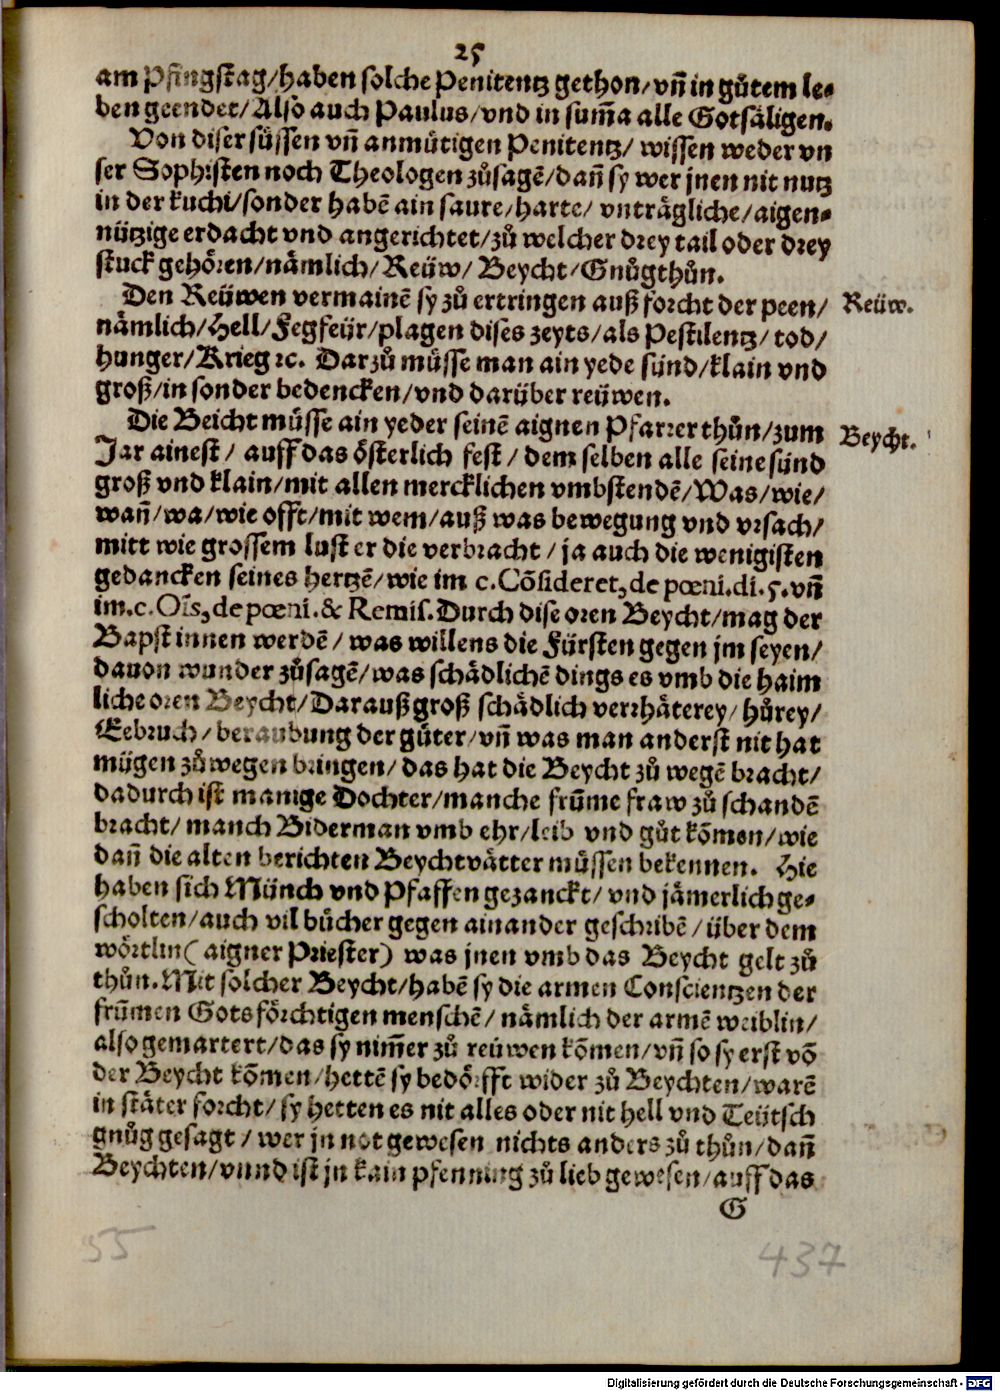 25
am Pfingstag/haben solche Penitentz gethon/vñ in gůtem le-
ben geendet/Also auch Paulus/vnd in sum̃a alle Gotsäligen.
Von diser süssen vñ anmütigen Penitentz/ wissen weder vn
ser Sophisten noch Theologen zůsagẽ/dañ sy wer jnen nit nutz
in der kuchi/sonder habẽ ain saure/harte/ vnträgliche/aigen-
nützige erdacht vnd angerichtet/zů welcher drey tail oder drey
stuck gehören/nämlich/Reüw/Beycht/Gnůgthůn.
Den Reüwen vermainẽ sy zů ertringen auß forcht der peen/
Reüw.
nämlich/Hell/Fegfeür/plagen dises zeyts/als Pestilentz/tod/
hunger/Krieg ꝛc. Darzů müsse man ain yede sünd/klain vnd
groß/in sonder bedencken/vnd darüber reüwen.
Die Beicht müsse ain yeder seinẽ aignen Pfarrer thůn/zum
Beycht.
Jar ainest/ auff das österlich fest/dem selben alle seine sünd
groß vnd klain/mit allen mercklichen vmbstendẽ/Was/wie/
wañ/wa/wie offt/mit wem/auß was bewegung vnd vrsach/
mitt wie grossem lust er die verbracht/ja auch die wenigisten
gedancken seines hertzẽ/wie im c.Cõsideret,de pœni.di.5.vñ
im.c.Oĩs,de pœni.& Remis.Durch dise oren Beycht/mag der
Bapst innen werdẽ/was willens die Fürsten gegen jm seyen/
dauon wunder zůsagẽ/was schädlichẽ dings es vmb die haim
liche oren Beycht/Darauß groß schädlich verrhäterey/hůrey/
Eebruch/beraubung der güter/vñ was man anderst nit hat
mügen zů wegen bringen/das hat die Beycht zů wegẽ bracht/
dadurch ist manige Dochter/manche frũme fraw zů schandẽ
bracht/manch Biderman vmb ehr/leib vnd gůt kõmen/wie
dañ die alten berichten Beychtvätter müssen bekennen. Hie
haben sich Münch vnd Pfaffen gezanckt/vnd jämerlich ge-
scholten/auch vil bücher gegen ainander geschribẽ/über dem
wörtlin(aigner Priester) was jnen vmb das Beycht gelt zů
thůn.Mit solcher Beycht/habẽ sy die armen Conscientzen der
frũmen Gotsförchtigen menschẽ/nämlich der armẽ weiblin/
also gemartert/das sy nim̃er zů reüwen kõmen/vñ so sy erst võ
der Beycht kõmen/hettẽ sy bedörfft wider zů Beychten/warẽ
in stäter forcht/sy hetten es nit alles oder nit hell vnd Teütsch
gnůg gesagt/wer jn not gewesen nichts anders zů thůn/dañ
Beychten/vnnd ist jn kain pfenning zů lieb gewesen/auff das
G
55
437
Digitalisierung gefördert durch die Deutsche Forschungsgemeinschaft - DFG